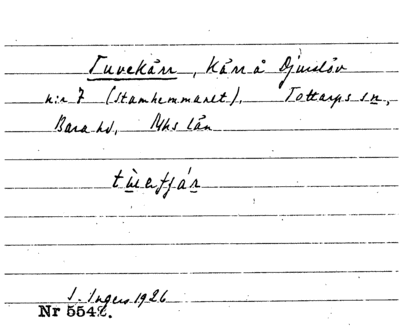 Tuvekärr, kärr å Djurslöv
n:r 7 (stamhemmanet). Tottarps sn,
Bara hd, Mhs län
I. Ingers 1926
Nr 5542.